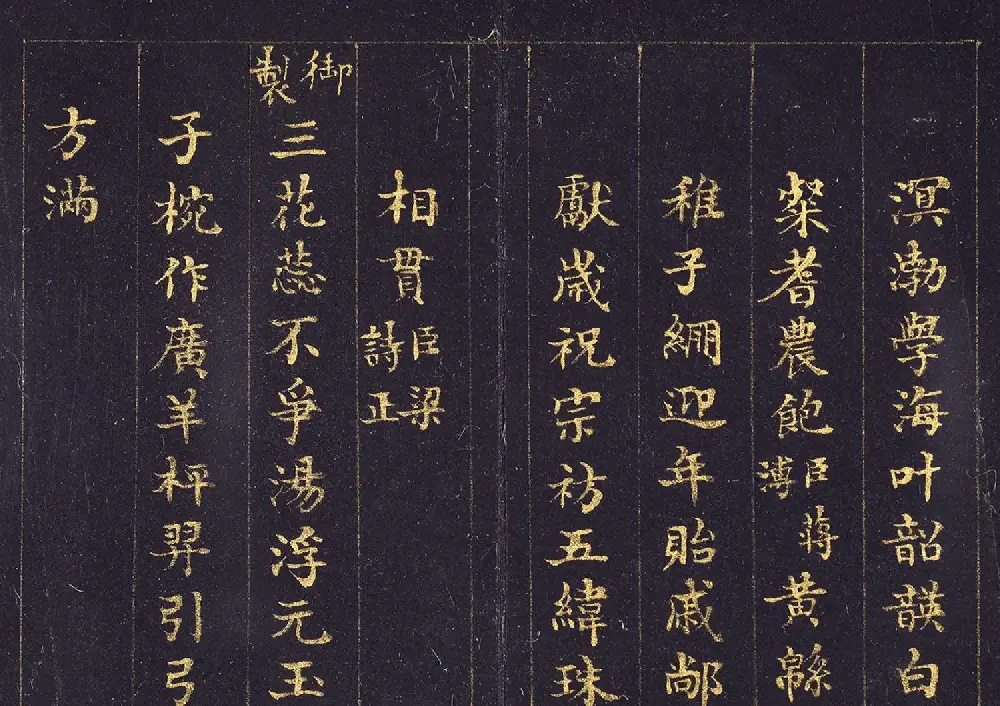 溟渤學海叶韶韺白
粲耆農飽臣蔣溥黄緜
稚子繃迎年貽戚鄰
獻歲祝宗祊五緯珠
相貫臣梁詩正
御製三花蕊不爭湯浮元玉
子椀作廣羊枰羿引弓
方滿